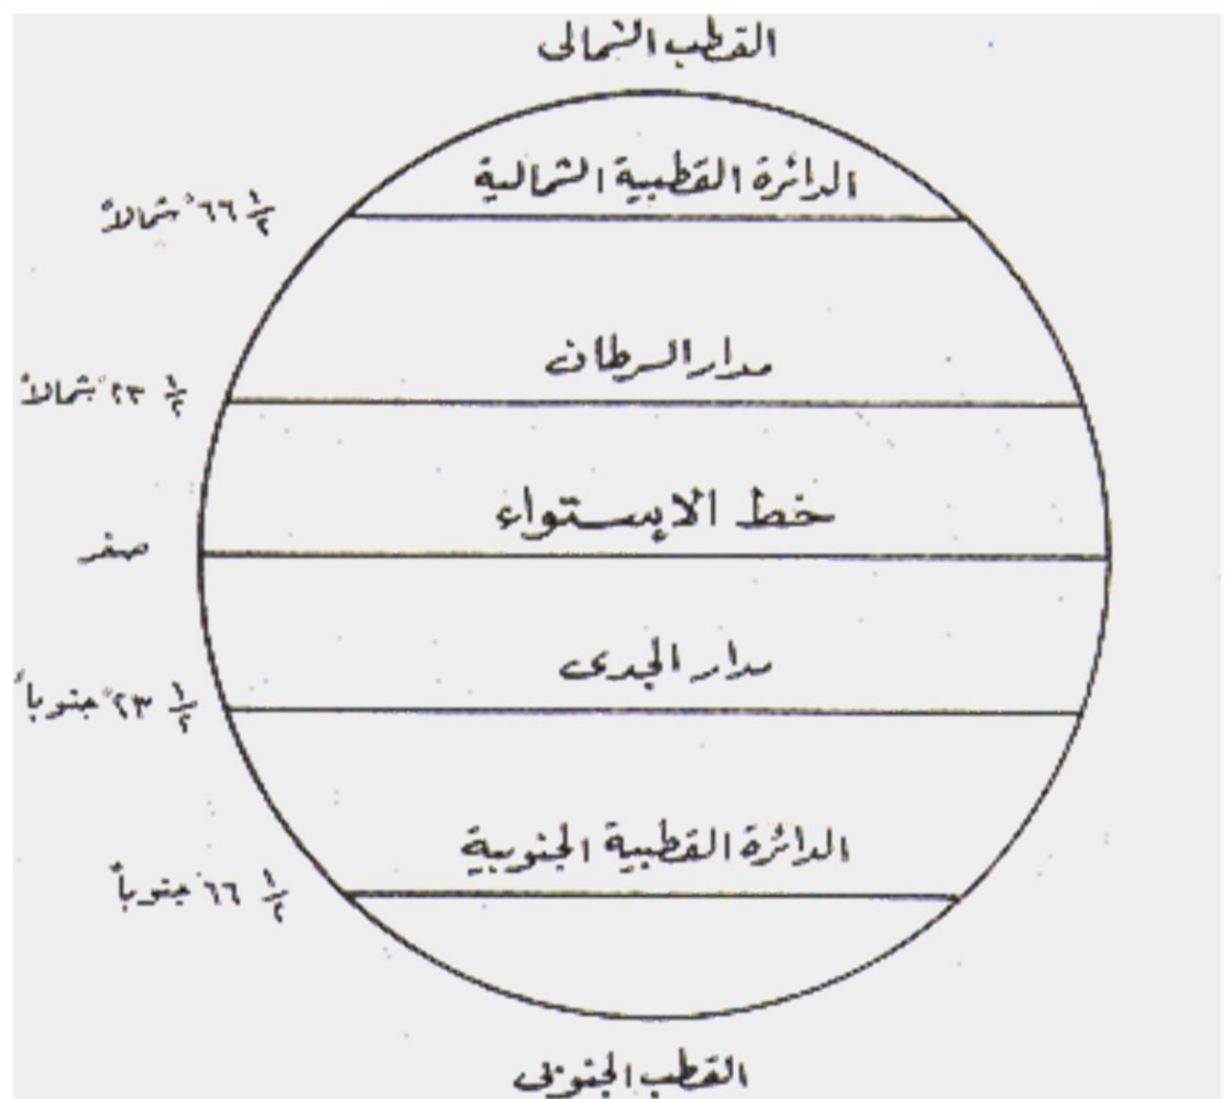 القطب الشمالى
الدائرة القطبية الشمالية
١/٢ ٦٦° شمالاً
مدار السرطان
١/٢ ٢٣° شمالاً
خط الاستواء
صفر
مدار الجدى
١/٢ ٢٣° جنوباً
الدائرة القطبية الجنوبية
١/٢ ٦٦° جنوباً
القطب الجنوبى